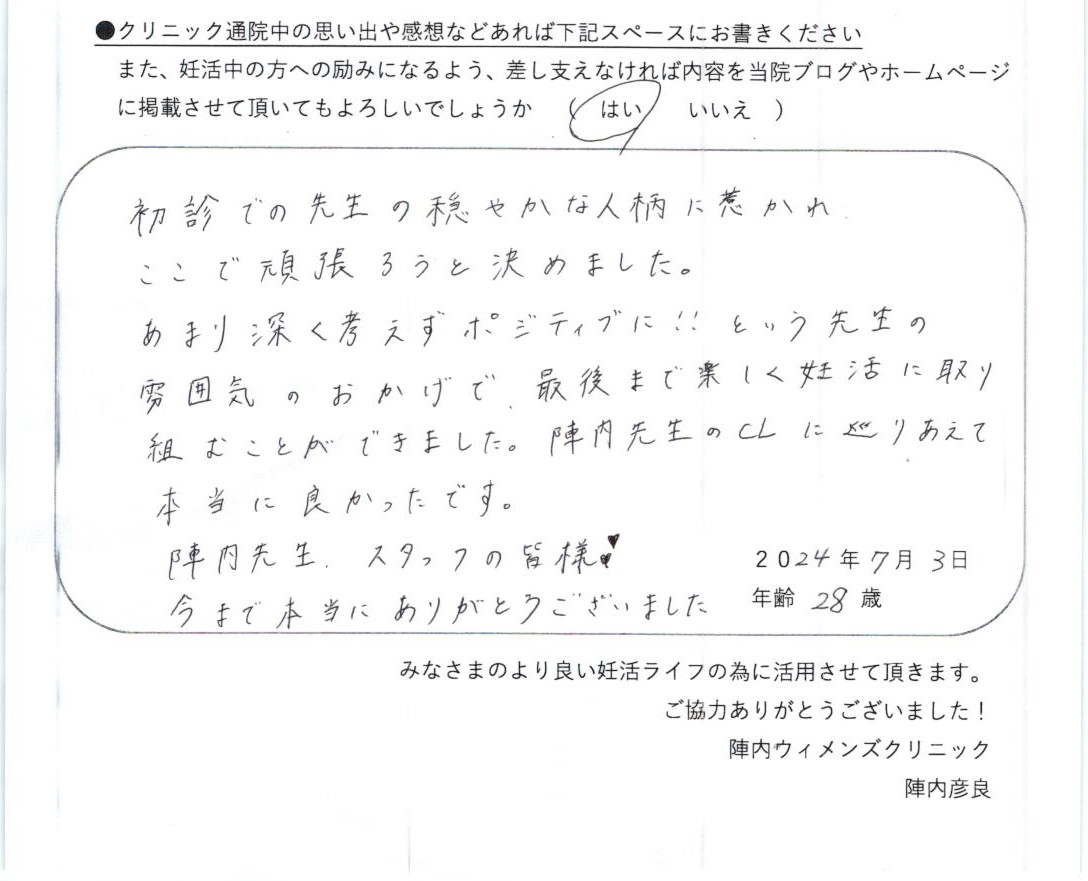 ●クリニック通院中の思い出や感想などあれば下記スペースにお書きください
また、妊活中の方への励みになるよう、差し支えなければ内容を当院ブログやホームページ
に掲載させて頂いてもよろしいでしょうか （ はい いいえ ）
初診での先生の穏やかな人柄に惹かれ
ここで頑張ろうと決めました。
あまり深く考えずポジティブに!!という先生の
雰囲気のおかげで、最後まで楽しく妊活に取り
組むことができました。陣内先生のCLに巡りあえて
本当に良かったです。
陣内先生、スタッフの皆様♥
今まで本当にありがとうございました
2024年7月3日
年齢 28歳
みなさまのより良い妊活ライフの為に活用させて頂きます。
ご協力ありがとうございました！
陣内ウィメンズクリニック
陣内彦良